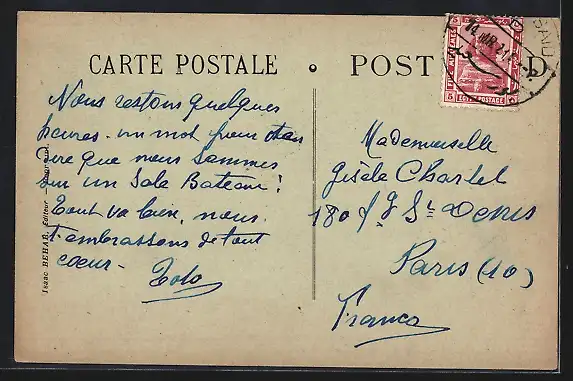 CARTE POSTALE
POST
D
5
5
EGYPT POSTAGE
SAID
Nous restons quelques
heures. un mot pour
Dire que nous sommes
sur un Sale Bateau!
Tout va bien, nous
t'embrassons de tout
coeur -
Toto
Mademoiselle
Gisèle Chartel
180 f g St Denis
Paris (10)
France
Isaac BEHAR, Editeur